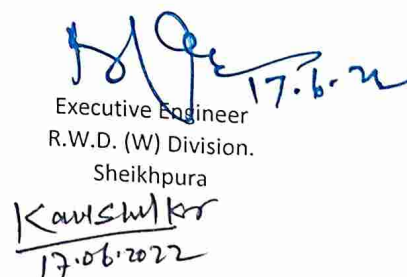 17.6.22
Executive Engineer
R.W.D. (W) Division.
Sheikhpura
17.06.2022